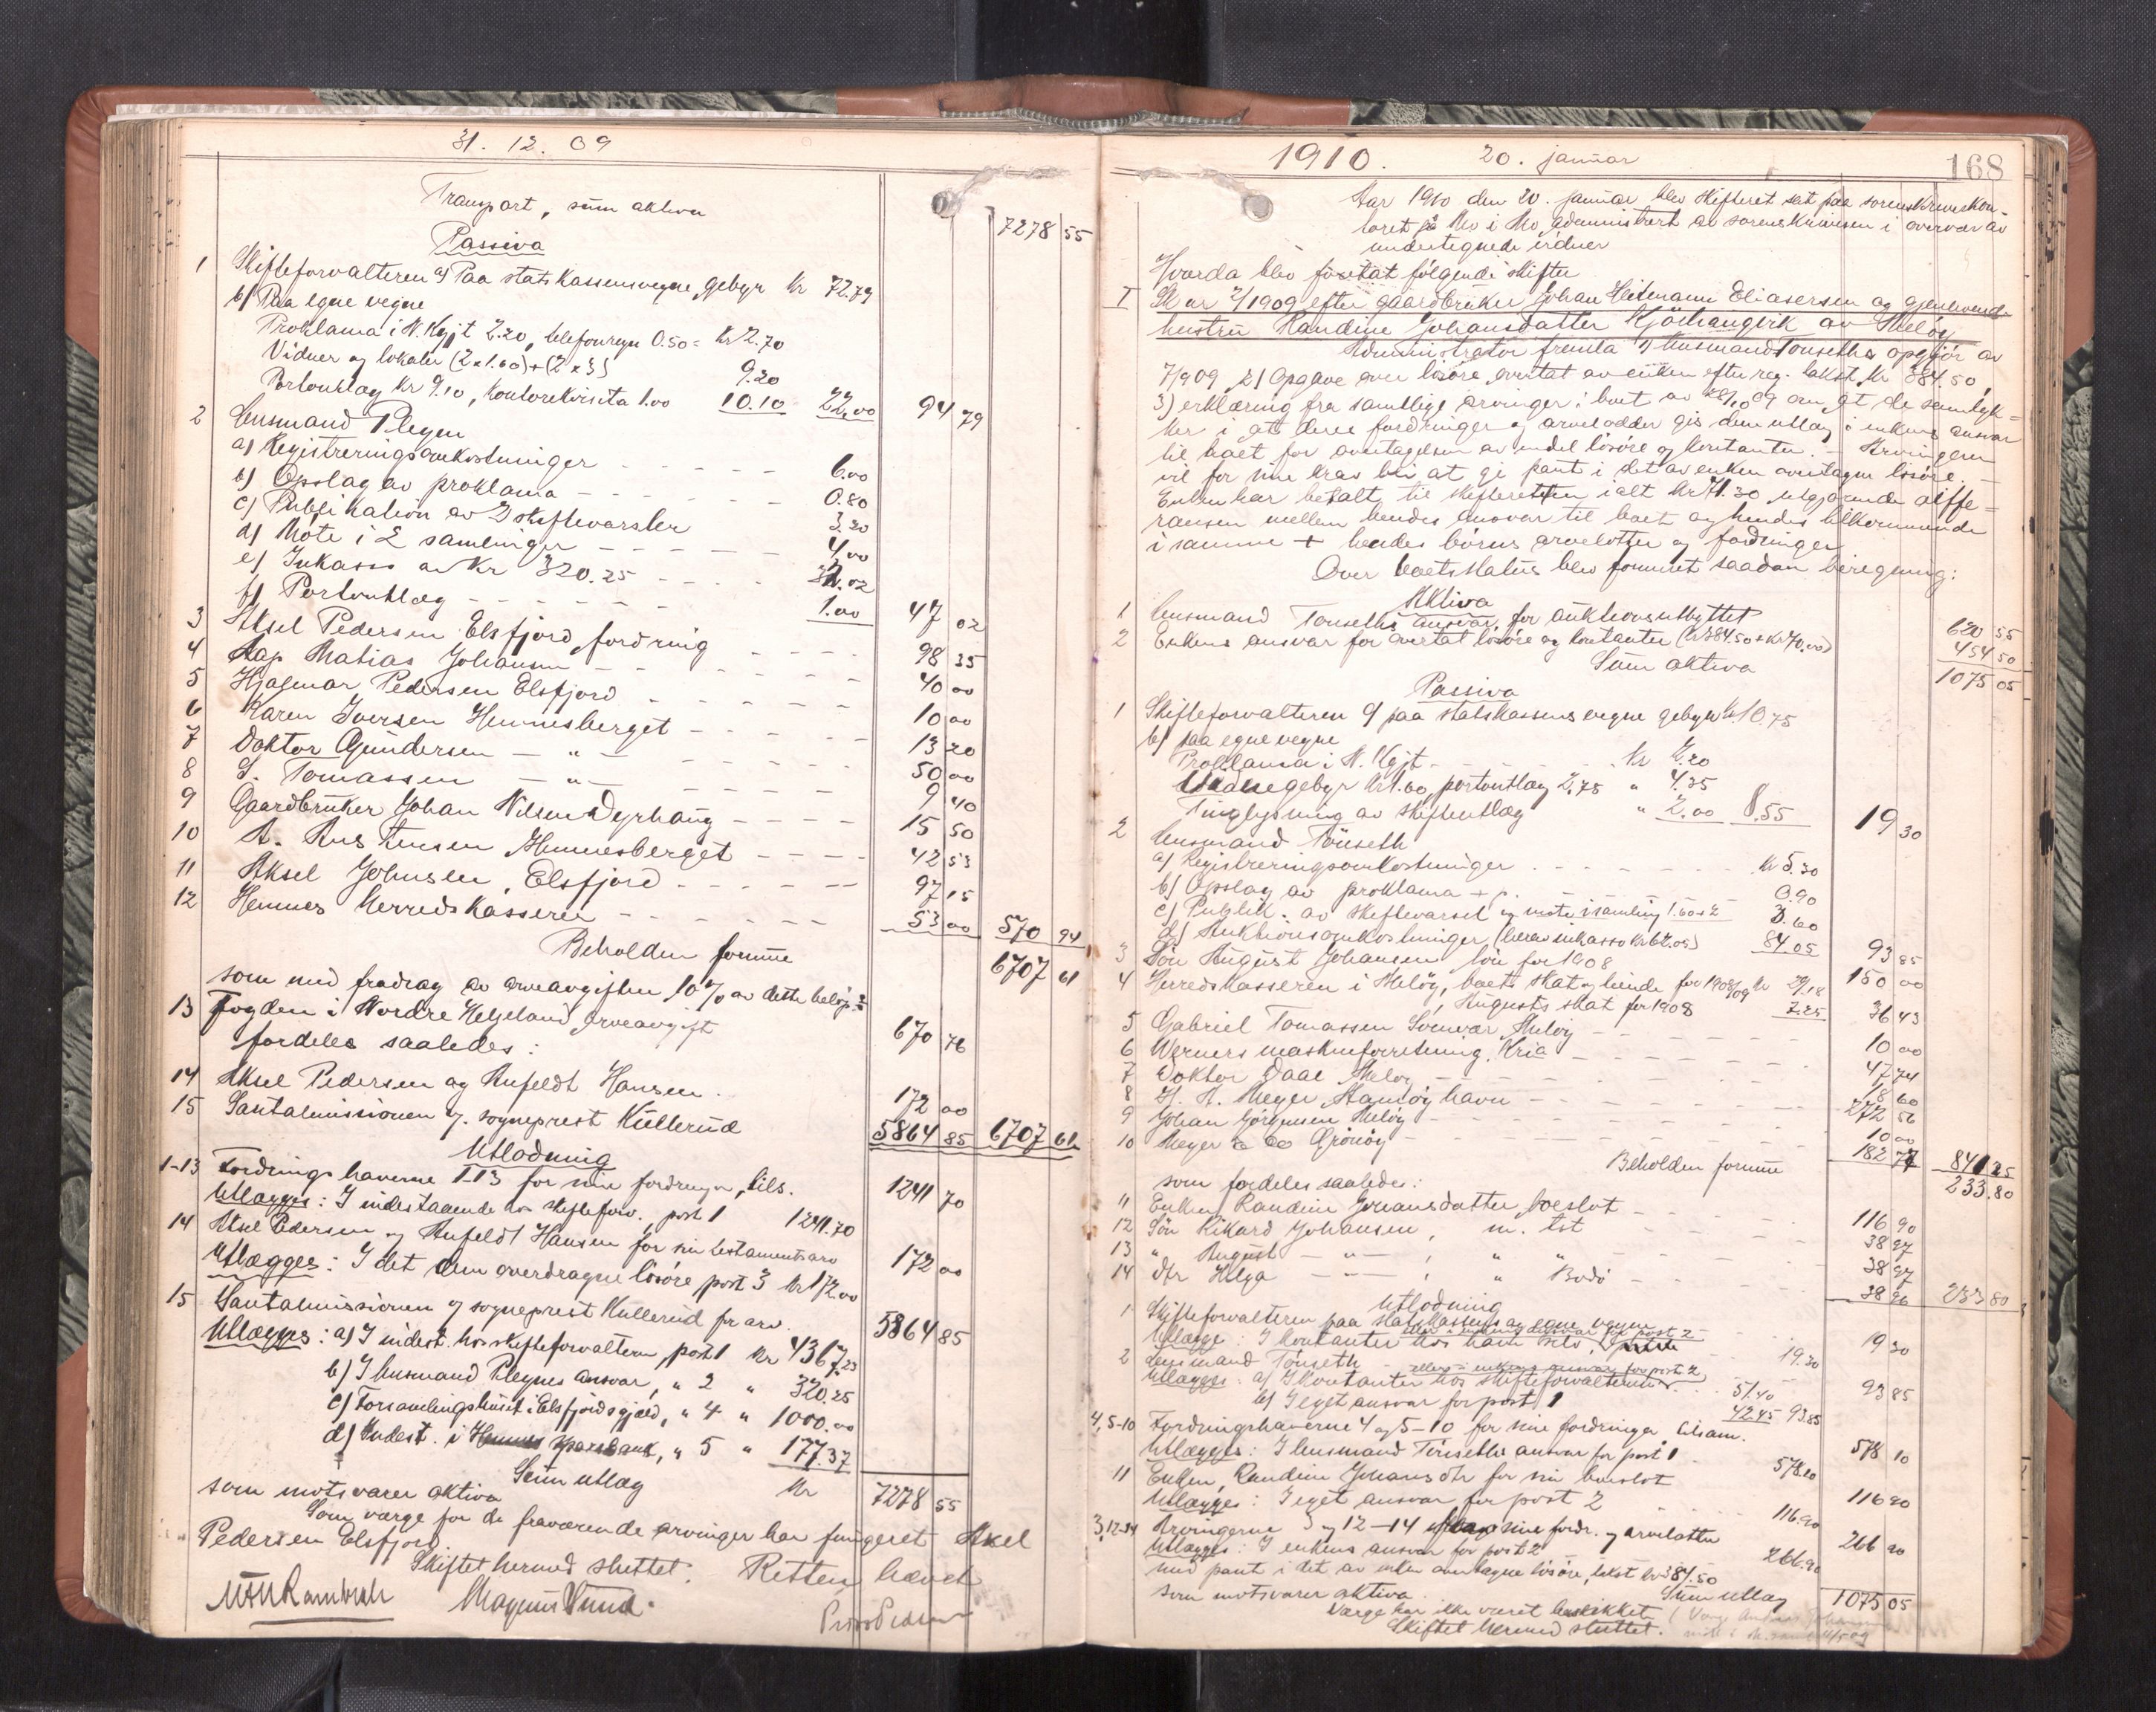 31. 12. 09
Transport, sum aktiva 7278 55
Passiva
1 Skifteforvalteren a) Paa statskassens vegne, gebyr Kr 72.79
b) Paa egne vegne
Proklama i N. Kgjt 2.20, telefonregn 0.50 = Kr 2.70
Vidner og lokale (2 x 1.60) + (2 x 3) 9.20
Portoutlæg Kr 9.10, Kontorekvisita 1.00 10.10 22.00 94 79
2 Lensmand Plegen
a) Registreringsomkostninger 6.00
b) Opslag av proklama 0.80
c) Publikation av 2 skiftevarsler 3.20
d) Möte i 2 samlinger 4.00
e) Inkasso av Kr 320.25 32.02
f) Portoutlæg 1.00 47 02
3 Aksel Pedersen Elsfjord fordring 98 35
4 Lap Matias Johansen 40 00
5 Hjalmar Pedersen Elsfjord 10 00
6 Karen Iversen Hemnesberget 13 20
7 Doktor Gundersen — " — 50 00
8 S. Tomassen — " — 9 40
9 Gaardbruker Johan Nilsen Dyrhaug 15 50
10 A. Austensen Hemnesberget 42 53
11 Aksel Johnsen, Elsfjord 97 15
12 Hemnes Herredskasserer 53 00 570 94
Beholden formue 6707 61
som med fradrag av arveavgiften 10% av dette belöp =
13 Fogden i Nordre Helgeland arveavgift 670 76
fordeles saaledes:
14 Aksel Pedersen og Anfeldt Hansen 172 00
15 Santalmissionen v. sogneprest Kullerud 5864 85 6707 61
Utlodning
1-13 Fordringshaverne 1-13 for sine fordringer, tils. 1241 70
Utlægges: I indestaaende hos skifteforv., post 1 1241.70
14 Aksel Pedersen og Anfeldt Hansen for sin testamentsarv 172 00
Utlægges: I det dem overdragne lösöre post 3 Kr 172.00
15 Santalmissionen v sogneprest Kullerud for arv 5864 85
Utlægges: a) I indest. hos skifteforvalteren post 1 Kr 4367.23
b) I lensmand Plegens ansvar, " 2 " 320.25
c) Forsamlingshuset i Elsfjords gjæld, " 4 " 1000.00
d) Indest. i Hemnes sparebank, " 5 " 177.37
Sum utlæg Kr 7278 55
som motsvarer aktiva
Som værge for de fraværende arvinger har fungeret Aksel
Pedersen Elsfjord.
Skiftet hermed sluttet. Retten hævet
Magnus Vund.
1910. 20. januar 168
Aar 1910 den 20. januar blev skifteret sat paa sorenskriverkon-
toret på Mo i Mo administrert av sorenskriveren i overvær av
undertegnede vidner
Hvorda blev foretat følgende skifter
I Sk nr 2/1909 efter gaardbruker Johan Heitmann Eliasersen og gjenlevende
hustru Randine Johansdatter Kjörhaugvik av Melöy
Administrator fremla 1) lensmand Tonseths opgjör av
7/9 09 2) Opgave over lösöre overtat av enken efter reg. takst Kr 384.50,
3) erklæring fra samtlige arvinger i boet av 28/10 09 om at de samtyk-
ker i at deres fordringer og arvelodder gis dem utlag i enkens ansvar
til boet for overtagelsen av endel lösöre og kontanter. — Arvingerne
vil for sine krav bli at gi pant i det av enken overtagne lösöre. —
Enken har betalt til skifteretten ialt Kr 71.30 utgjörende diffe-
ransen mellem hendes ansvar til boet og hendes tilkommende
i samme + hendes börns arvelotter og fordringer
Over boets status blev formeret saadan beregning:
Aktiva
1 Lensmand Tonseths ansvar for auktionsutbyttet 620 55
2 Enkens ansvar for overtat lösöre og kontanter (Kr 384.50 + Kr 70.00) 454 50
Sum aktiva 1075 05
Passiva
1 Skifteforvalteren a) paa statskassens vegne gebyr Kr 10.75
b) paa egne vegne
Proklama i N. Kgjt Kr 2.20
Vidnegebyr Kr 1.60, portoutlæg 2.75 " 4.35
Tinglysning av skifteutlæg " 2.00 8.55 19 30
2 Lensmand Tönseth
a) Registreringsomkostninger Kr 5.30
b) Opslag av proklama + p. 0.90
c) Publik. av skiftevarsel og möte i samling 1.60 + 2 3.60
d) Auktionsomkostninger (herav inkasso Kr 62.05) 84.05 93 85
3 Sön August Johansen lön for 1908 150 00
4 Herredskasseren i Melöy, boets skat og tiende for 1908/09 Kr 29.18
, Augusts skat for 1908 7.25 36 43
5 Gabriel Tomassen Sörvær, Melöy 10 00
6 Werners maskinforretning, Kria 47 74
7 Doktor Daae Melöy 18 60
8 H. A. Meyer Stamöyhavn 272 56
9 Johan Jörgensen Melöy 10 00
10 Meyer & Co Grönöy 182 77 841 25
Beholden formue 233.80
som fordeles saaledes:
11 Enken, Randine Johansdatter, boeslot 116 90
12 Sön Rikard Johansen, m. tst 38 97
13 " August — " — , " " 38 97
14 dtr Helga — " — , " Bodö 38 96 233 80
Utlodning
1 Skifteforvalteren paa statskassens og egne vegne 19 30
Utlægges: I kontanter hos ham selv, 19.30
eller i enkens ansvar for post 2
2 Lensmand Tönseth 93 85
Utlægges: a) I kontanter hos skifteforvalteren 51.40
eller i enkens ansvar for post 2
b) I eget ansvar for post 1 42.45 93.85
4, 5-10 Fordringshaverne 4 og 5-10 for sine fordringer, tilsam. 578 10
Utlægges: I lensmand Tönseths ansvar for post 1 578.10
11 Enken, Randine Johansdtr for sin boeslot 116 90
Utlægges: I eget ansvar for post 2 116.90
3, 12-14 Arvingerne 3 og 12-14 sine fordr. og arvelotter 266 90
Utlægges: I enkens ansvar for post 2 266.90
med pant i det av enken overtagne lösöre, takst Kr 384.50
Sum utlæg 1075 05
som motsvarer aktiva
Værge har ikke været beskikket
Skiftet hermed sluttet.